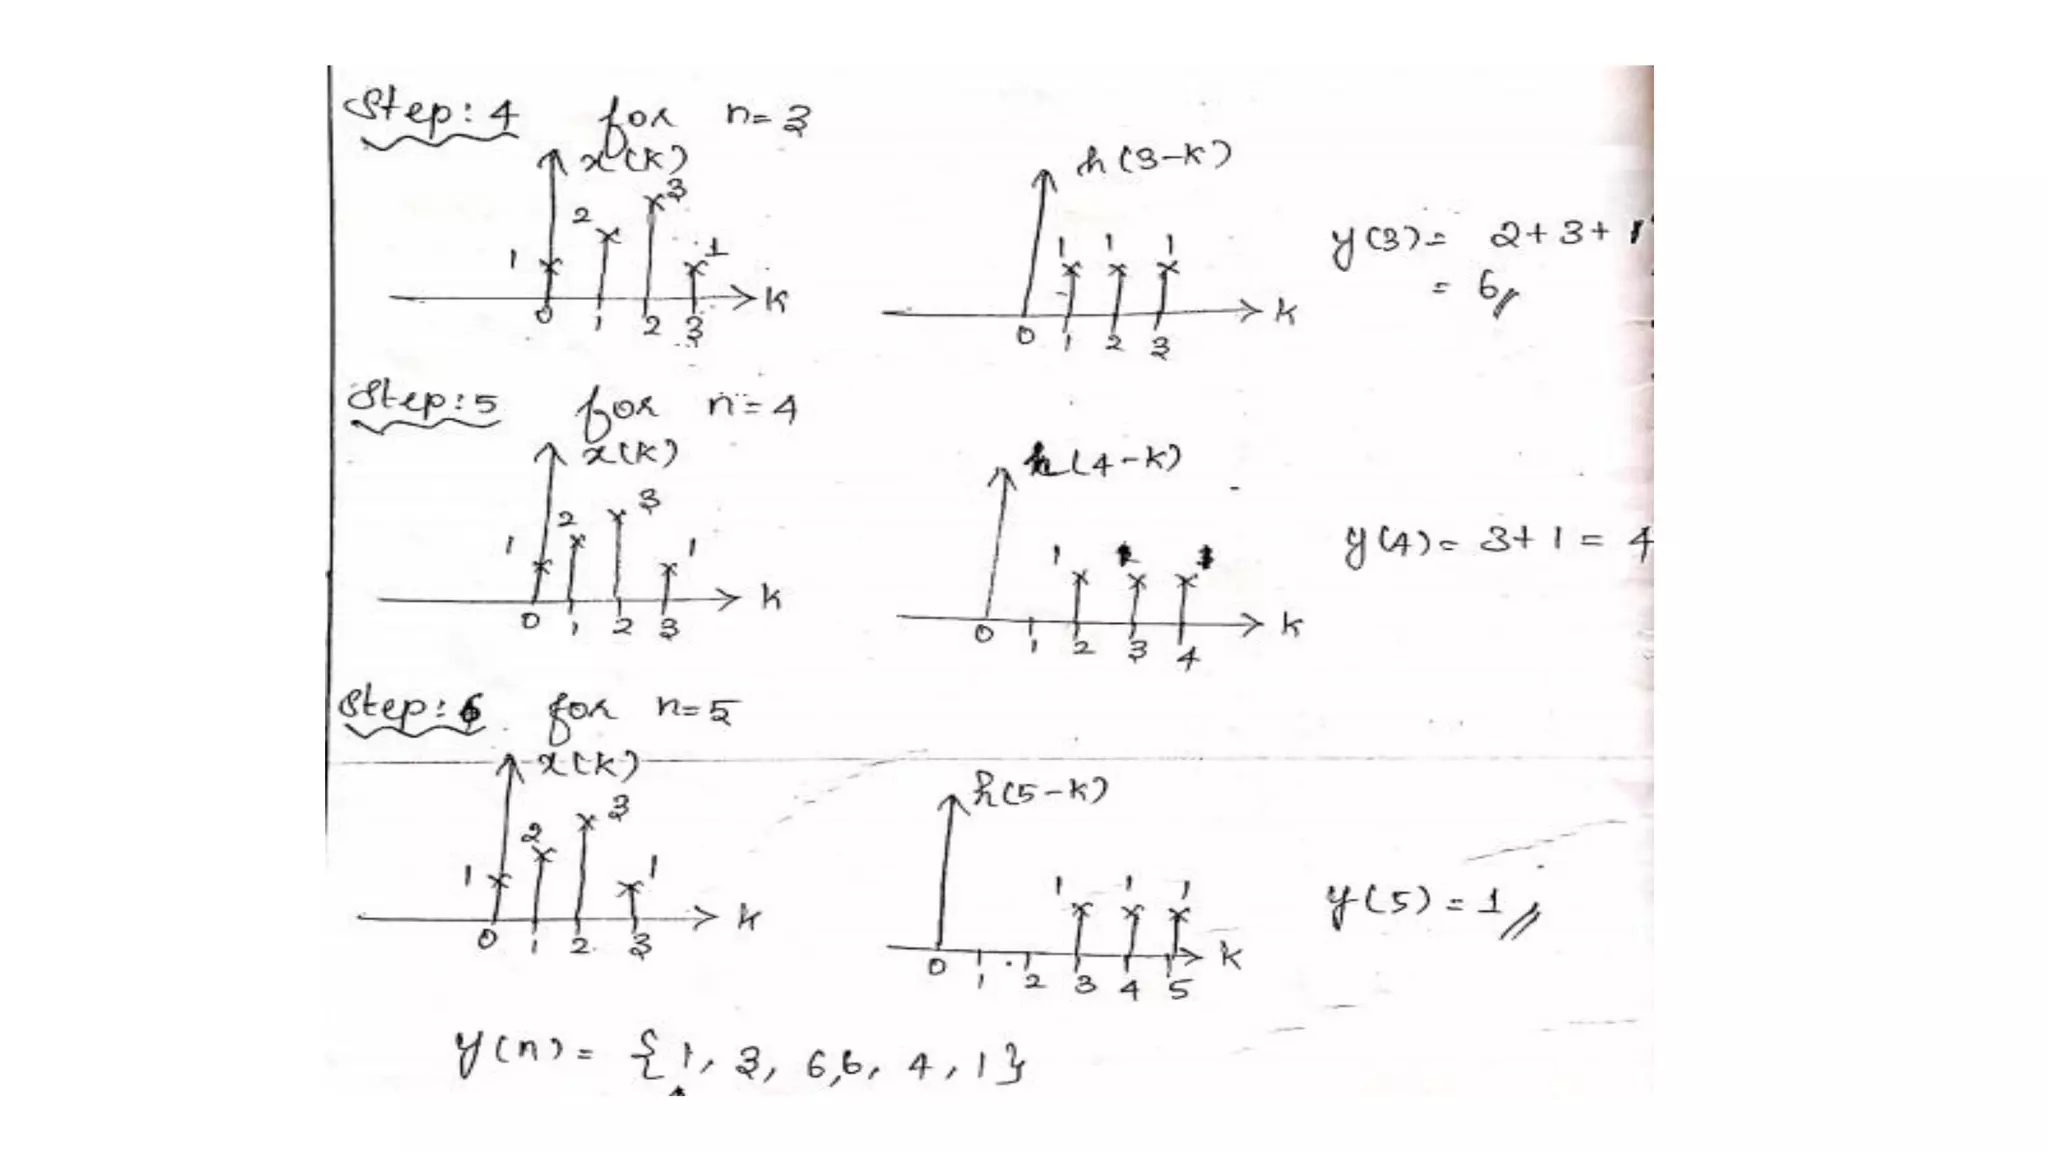 Step: 4 for n=3
x(k)
1 2 3 1
0 1 2 3 k
h(3-k)
1 1 1
0 1 2 3 k
y(3)= 2+3+1
= 6
Step: 5 for n=4
x(k)
1 2 3 1
0 1 2 3 k
h(4-k)
1 1 1
0 1 2 3 4 k
y(4)= 3+1 = 4
Step: 6 for n=5
x(k)
1 2 3 1
0 1 2 3 k
h(5-k)
1 1 1
0 1 2 3 4 5 k
y(5)=1
y(n)= {1, 3, 6,6, 4, 1}